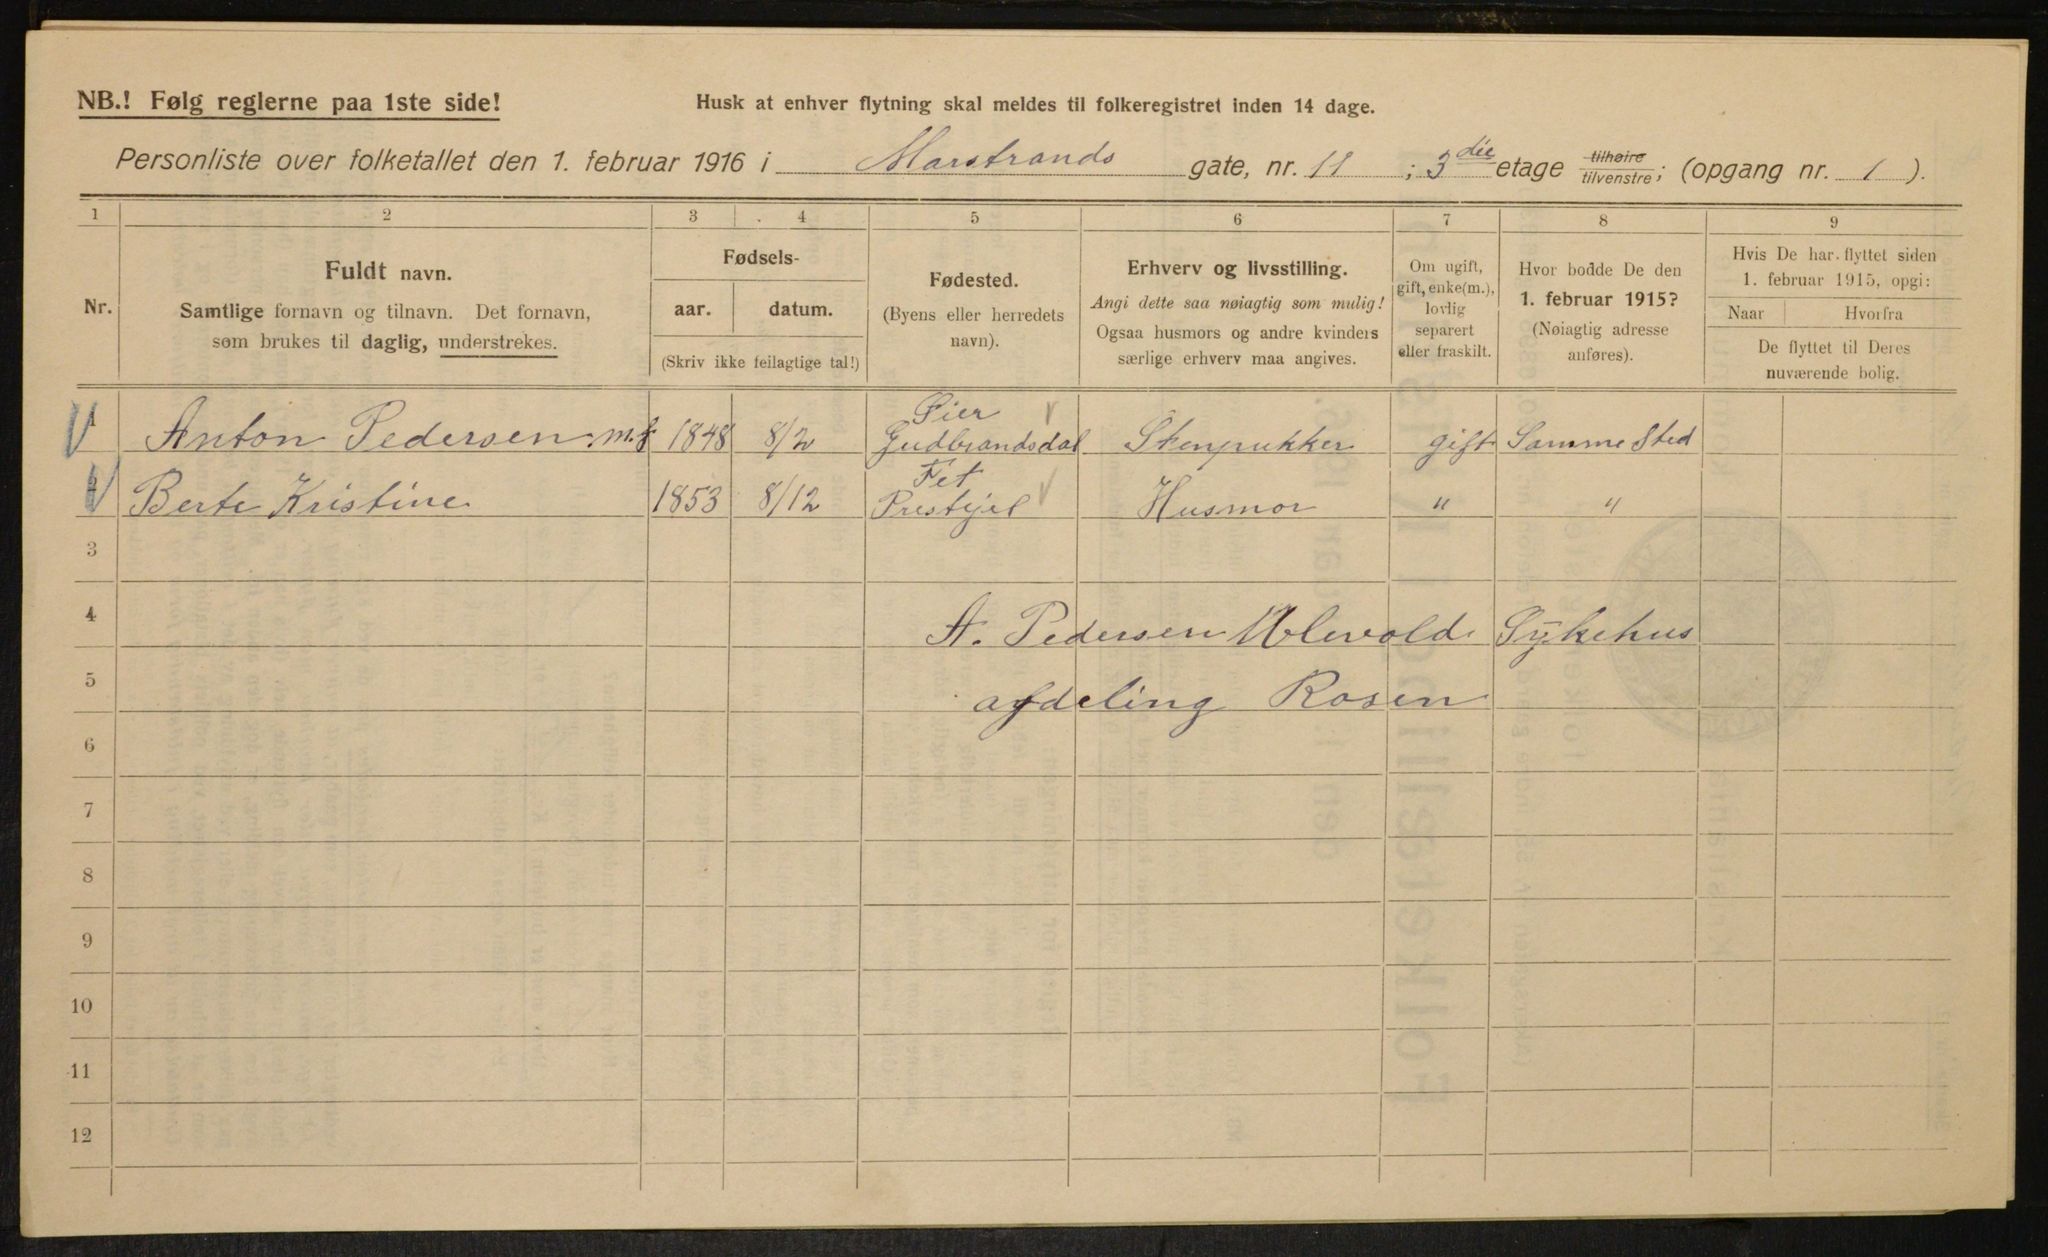 NB.! Følg reglerne paa 1ste side!
Husk at enhver flytning skal meldes til folkeregistret inden 14 dage.
Personliste over folketallet den 1. februar 1916 i Marstrands gate, nr. 11 ; 3die etage tilhøire tilvenstre; (opgang nr. 1 ).
1 2 3 4 5 6 7 8 9
Nr.
Fuldt navn.
Samtlige fornavn og tilnavn. Det fornavn,
som brukes til daglig, understrekes.
Fødsels-
aar. datum.
(Skriv ikke feilagtige tal!)
Fødested.
(Byens eller herredets
navn).
Erhverv og livsstilling.
Angi dette saa nøiagtig som mulig!
Ogsaa husmors og andre kvinders
særlige erhverv maa angives.
Om ugift,
gift, enke(m.),
lovlig
separert
eller fraskilt.
Hvor bodde De den
1. februar 1915?
(Nøiagtig adresse
anføres).
Hvis De har flyttet siden
1. februar 1915, opgi:
Naar Hvorfra
De flyttet til Deres
nuværende bolig.
1 Anton Pedersen 1848 8/2 Øier Gudbrandsdal Stenpukker gift Samme Sted
2 Berte Kristine 1853 8/12 Fet Prestejel Husmor " "
3
4 A. Pedersen Ulevold Sykehus
5 afdeling Rosen
6
7
8
9
10
11
12